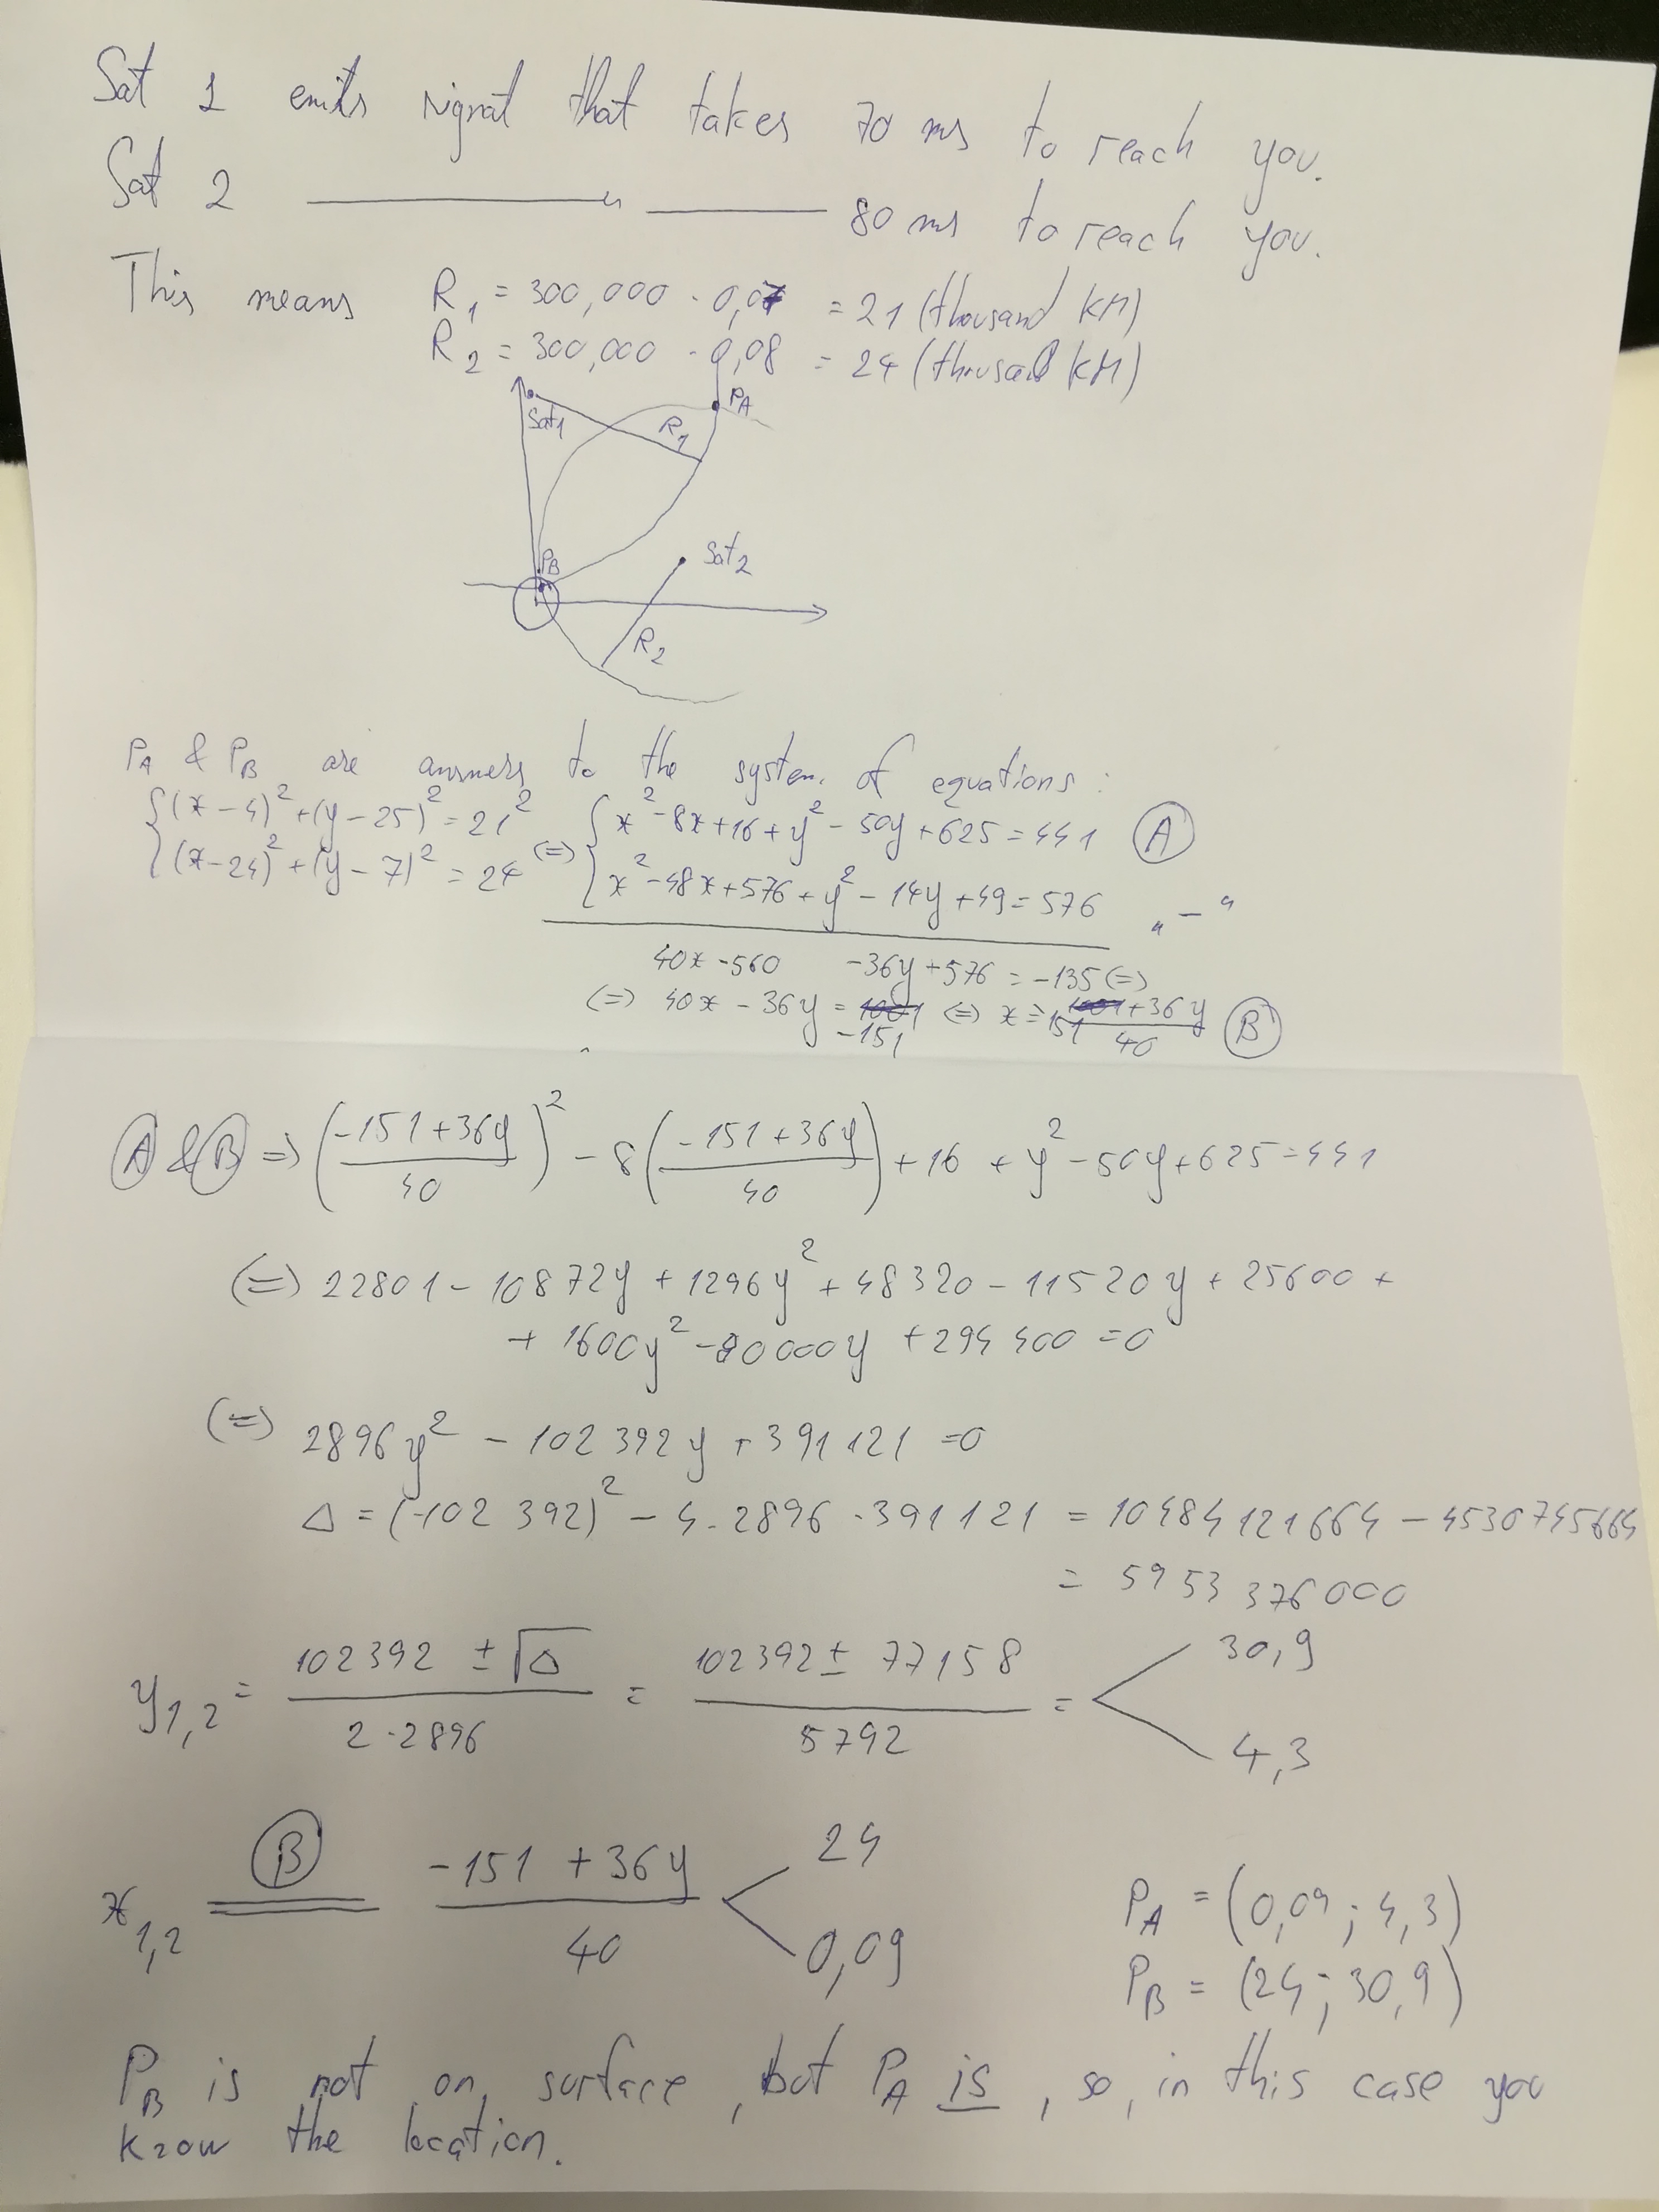 Sat 1 emits signal that takes 70 ms to reach you.
Sat 2 ———— " ———— 80 ms to reach you.
This means R₁ = 300,000 · 0,07 = 21 (thousand KM)
R₂ = 300,000 · 0,08 = 24 (thousand KM)
Sat₁
R₁
P_A
P_B
Sat₂
R₂
P_A & P_B are answers to the system of equations:
{(x-4)² + (y-25)² = 21² {x² - 8x + 16 + y² - 50y + 625 = 441 (A)
{(x-24)² + (y-7)² = 24 (=) {x² - 48x + 576 + y² - 14y + 49 = 576 „ — “
40x - 560 - 36y + 576 = -135 (=)
(=) 40x - 36y = -151 (=) x = 151 + 36y / 40 (B)
(A) & (B) => ((-151 + 36y)/40)² - 8((-151 + 36y)/40) + 16 + y² - 50y + 625 = 441
(=) 22801 - 10872y + 1296y² + 48320 - 11520y + 25600 +
+ 1600y² - 80000y + 294400 = 0
(=) 2896y² - 102392y + 391121 = 0
Δ = (-102 392)² - 4·2896·391121 = 10484121664 - 4530745664
= 5953376000
y₁,₂ = (102392 ± √Δ)/(2·2896) = (102392 ± 77158)/5792 = < 30,9
4,3
x₁,₂ = (B) (-151 + 36y)/40 < 24
0,09
P_A = (0,09; 4,3)
P_B = (24; 30,9)
P_B is not on surface, but P_A is, so, in this case you
know the location.